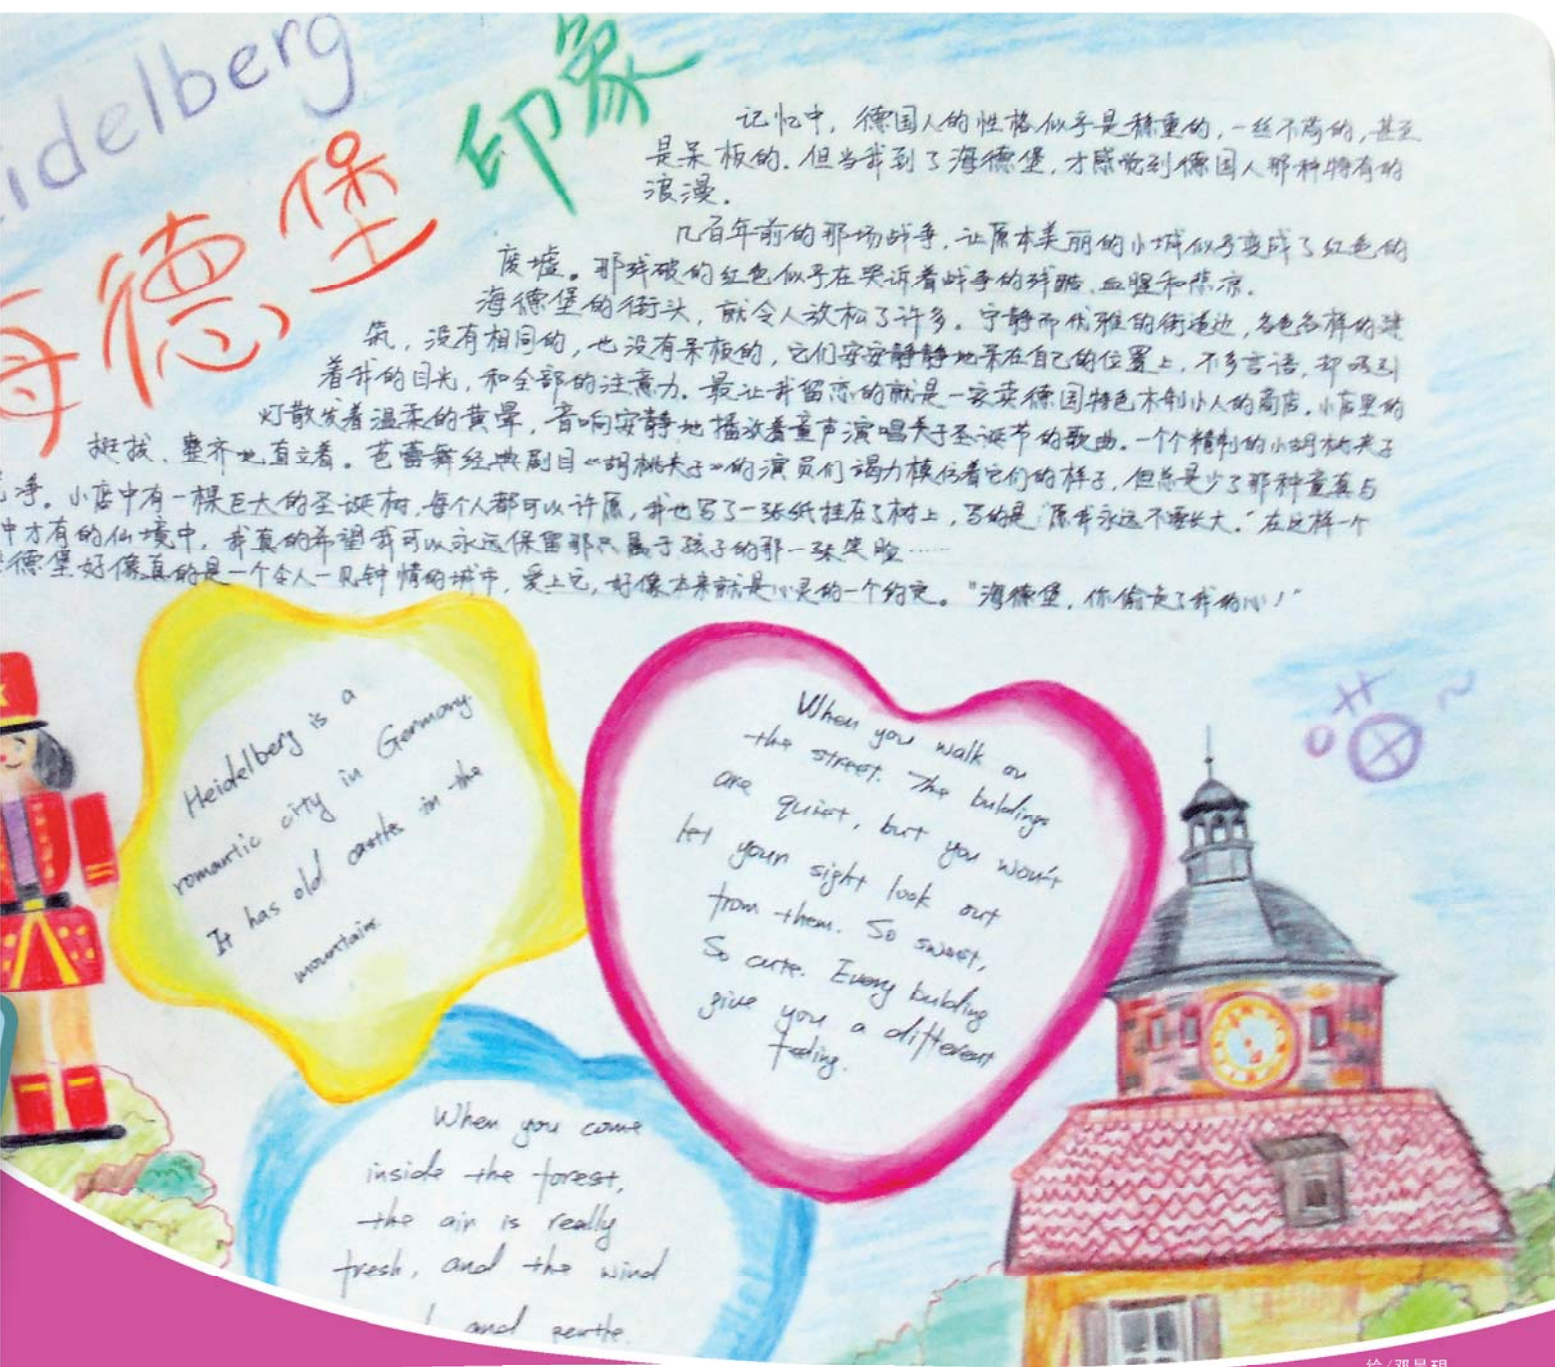 idelberg
海德堡印象
记忆中，德国人的性格似乎是稳重的，一丝不苟的，甚至
是呆板的。但当我到了海德堡，才感觉到德国人那种特有的
浪漫。
几百年前的那场战争，让原本美丽的小城似乎变成了红色的
废墟。那残破的红色似乎在哭诉着战争的残酷、血腥和悲凉。
海德堡的街头，就令人放松了许多。宁静而优雅的街道边，各色各样的建
筑，没有相同的，也没有呆板的，它们安安静静地呆在自己的位置上，不多言语，却吸引
着我的目光，和全部的注意力。最让我留恋的就是一家卖德国特色木制小人的商店。小店里的
灯散发着温柔的黄晕，音响安静地播放着童声演唱关于圣诞节的歌曲。一个个精制的小胡桃夹子
挺拔、整齐地直立着。芭蕾舞经典剧目《胡桃夹子》的演员们竭力模仿着它们的样子，但总是少了那种童真与
净。小店中有一棵巨大的圣诞树，每个人都可以许愿，我也写了一张纸挂在了树上，写的是“愿我永远不要长大。”在这样一个
中才有的仙境中，我真的希望我可以永远保留那只属于孩子的那一张笑脸……
德堡好像真的是一个令人一见钟情的城市，爱上它，好像本来就是心灵的一个约定。“海德堡，你偷走了我的心！”
Heidelberg is a
romantic city in Germany.
It has old castles in the
mountains.
When you walk on
the street. The buldings
are quiet, but you won't
let your sight look out
from them. So sweet,
So cute. Every bulding
give you a different
feeling.
When you come
inside the forest,
the air is really
fresh, and the wind
and gentle.
绘/邓昊玥